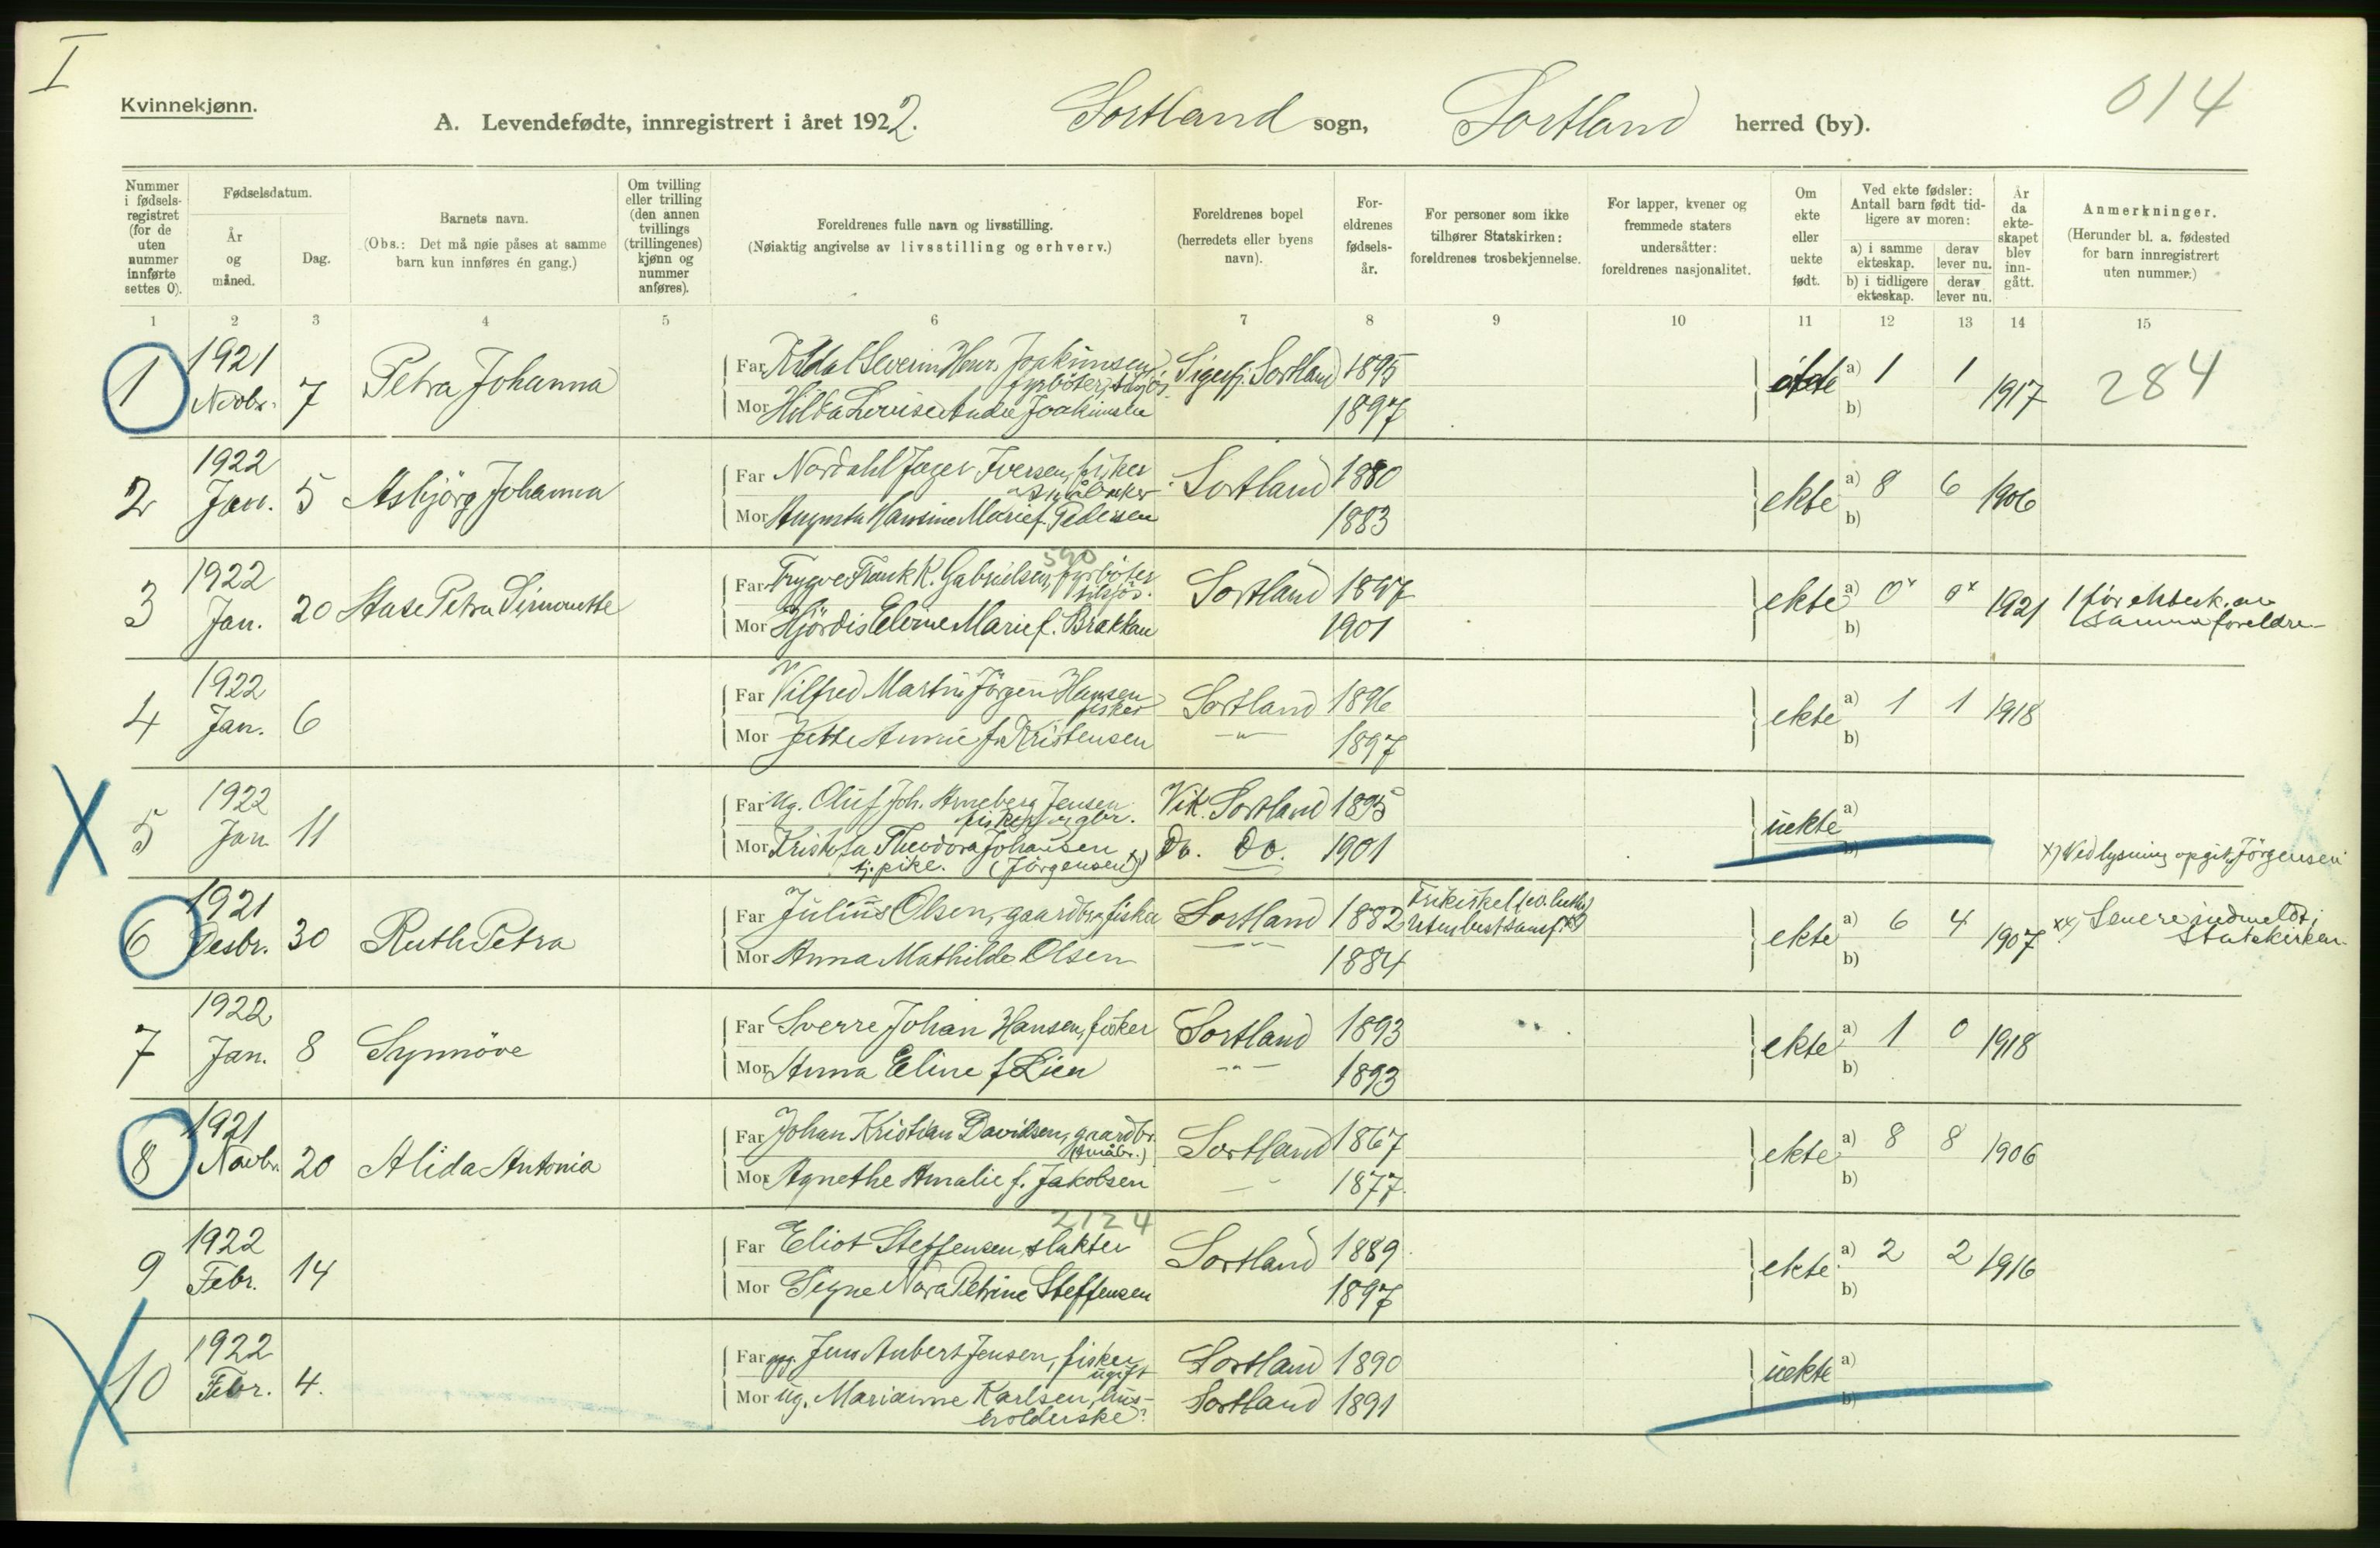 I
Kvinnekjønn.
A. Levendefødte, innregistrert i året 1922.
Sortland sogn,
Sortland herred (by).
014
Nummer i fødselsregistret (for de uten nummer innførte settes 0).
Fødselsdatum.
År og måned.
Dag.
Barnets navn.
(Obs.: Det må nøie påses at samme barn kun innføres én gang.)
Om tvilling eller trilling (den annen tvillings (trillingenes) kjønn og nummer anføres).
Foreldrenes fulle navn og livsstilling.
(Nøiaktig angivelse av livsstilling og erhverv.)
Foreldrenes bopel (herredets eller byens navn).
Foreldrenes fødselsår.
For personer som ikke tilhører Statskirken: foreldrenes trosbekjennelse.
For lapper, kvener og fremmede staters undersåtter: foreldrenes nasjonalitet.
Om ekte eller uekte født.
Ved ekte fødsler: Antall barn født tidligere av moren:
a) i samme ekteskap.
derav lever nu.
b) i tidligere ekteskap.
derav lever nu.
År da ekteskapet blev inngått.
Anmerkninger.
(Herunder bl. a. fødested for barn innregistrert uten nummer.)
1 2 3 4 5 6 7 8 9 10 11 12 13 14 15
1 1921 Novbr. 7 Petra Johanna
Far Severin Joakimsen fyrböter, Sigerfj. Sortland 1895
Mor Hilda Lovise Joakimsen 1897
ekte a) 1 1 1917 284
b)
2 1922 Jan. 5 Asbjörg Johanna
Far Nordahl Jager Iversen, fisker Sortland 1880
småbruker
Mor Augusta Hansine Marie f. Pedersen 1883
ekte a) 8 6 1906
b)
590
3 1922 Jan. 20 Aase Petra Simonette
Far Trygve Frank K. Gabrielsen, fyrböter Sortland 1897
tilsjös.
Mor Hjördis Elvine Marie f. Brekkan 1901
ekte a) 0x 0x 1921 1 för ektesk. av
samme foreldre
b)
4 1922 Jan. 6
Far Vilfred Martin Jörgen Hansen Sortland 1896
fisker
Mor Jette Annie f. Kristensen —"— 1897
ekte a) 1 1 1918
b)
5 1922 Jan 11
Far Ug. Oluf Joh. Arneberg Jensen Vik. Sortland 1895
fisker gbr.
Mor Kristofa Theodora Johansen x) Do. Do. 1901
tj. pike. (Jörgensen)
uekte a)
b)
x) Ved lysning opgit Jörgensen
6 1921 Desbr. 30 Ruth Petra
Far Julius Olsen, gaardbr. fisker Sortland 1882 Frikirkel.
Mor Anna Mathilde Olsen —"— 1884
ekte a) 6 4 1907 xx) Senere indmeldt i
Statskirken
b)
7 1922 Jan. 8 Synnöve
Far Sverre Johan Hansen, fisker Sortland 1893
Mor Anna Eline f Lien —"— 1893
ekte a) 1 0 1918
b)
8 1921 Novbr. 20 Alida Antonia
Far Johan Kristian Davidsen, gaardbr. Sortland 1867
(småbr.)
Mor Agnethe Amalie f. Jakobsen —"— 1877.
ekte a) 8 8 1906
b)
2124
9 1922 Febr. 14
Far Eliot Steffensen, slakter Sortland 1889
Mor Signe Nora Petrine Steffensen 1897
ekte a) 2 2 1916
b)
10 1922 Febr. 4.
Far Jens Anbert Jensen, fisker Sortland 1890
ugift
Mor Ug. Marianne Karlsen, hus- Sortland 1891
holderske
uekte a)
b)